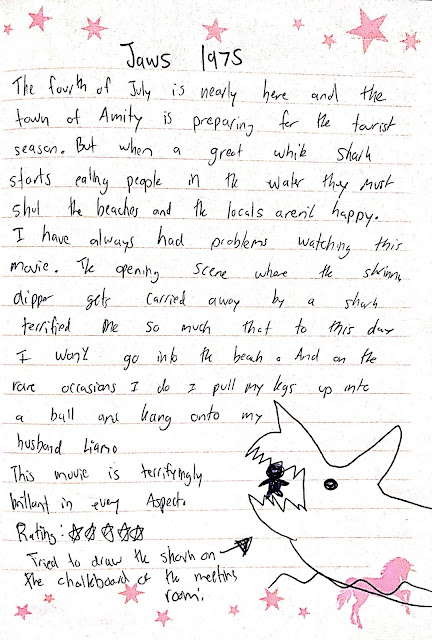 Jaws 1975
The fourth of July is nearly here and the
town of Amity is preparing for the tourist
season. But when a great white shark
starts eating people in the water they must
shut the beaches and the locals aren't happy.
I have always had problems watching this
movie. The opening scene where the skinny
dipper gets carried away by a shark
terrified me so much that to this day
I won't go into the beah. And on the
rare occasions I do I pull my legs up into
a ball and hang onto my
husband Liamo
This movie is terrifyingly
brillant in every Aspect.
Rating: ☆☆☆☆☆
Tried to draw the shark on
the chalkboard at the meeting
room.